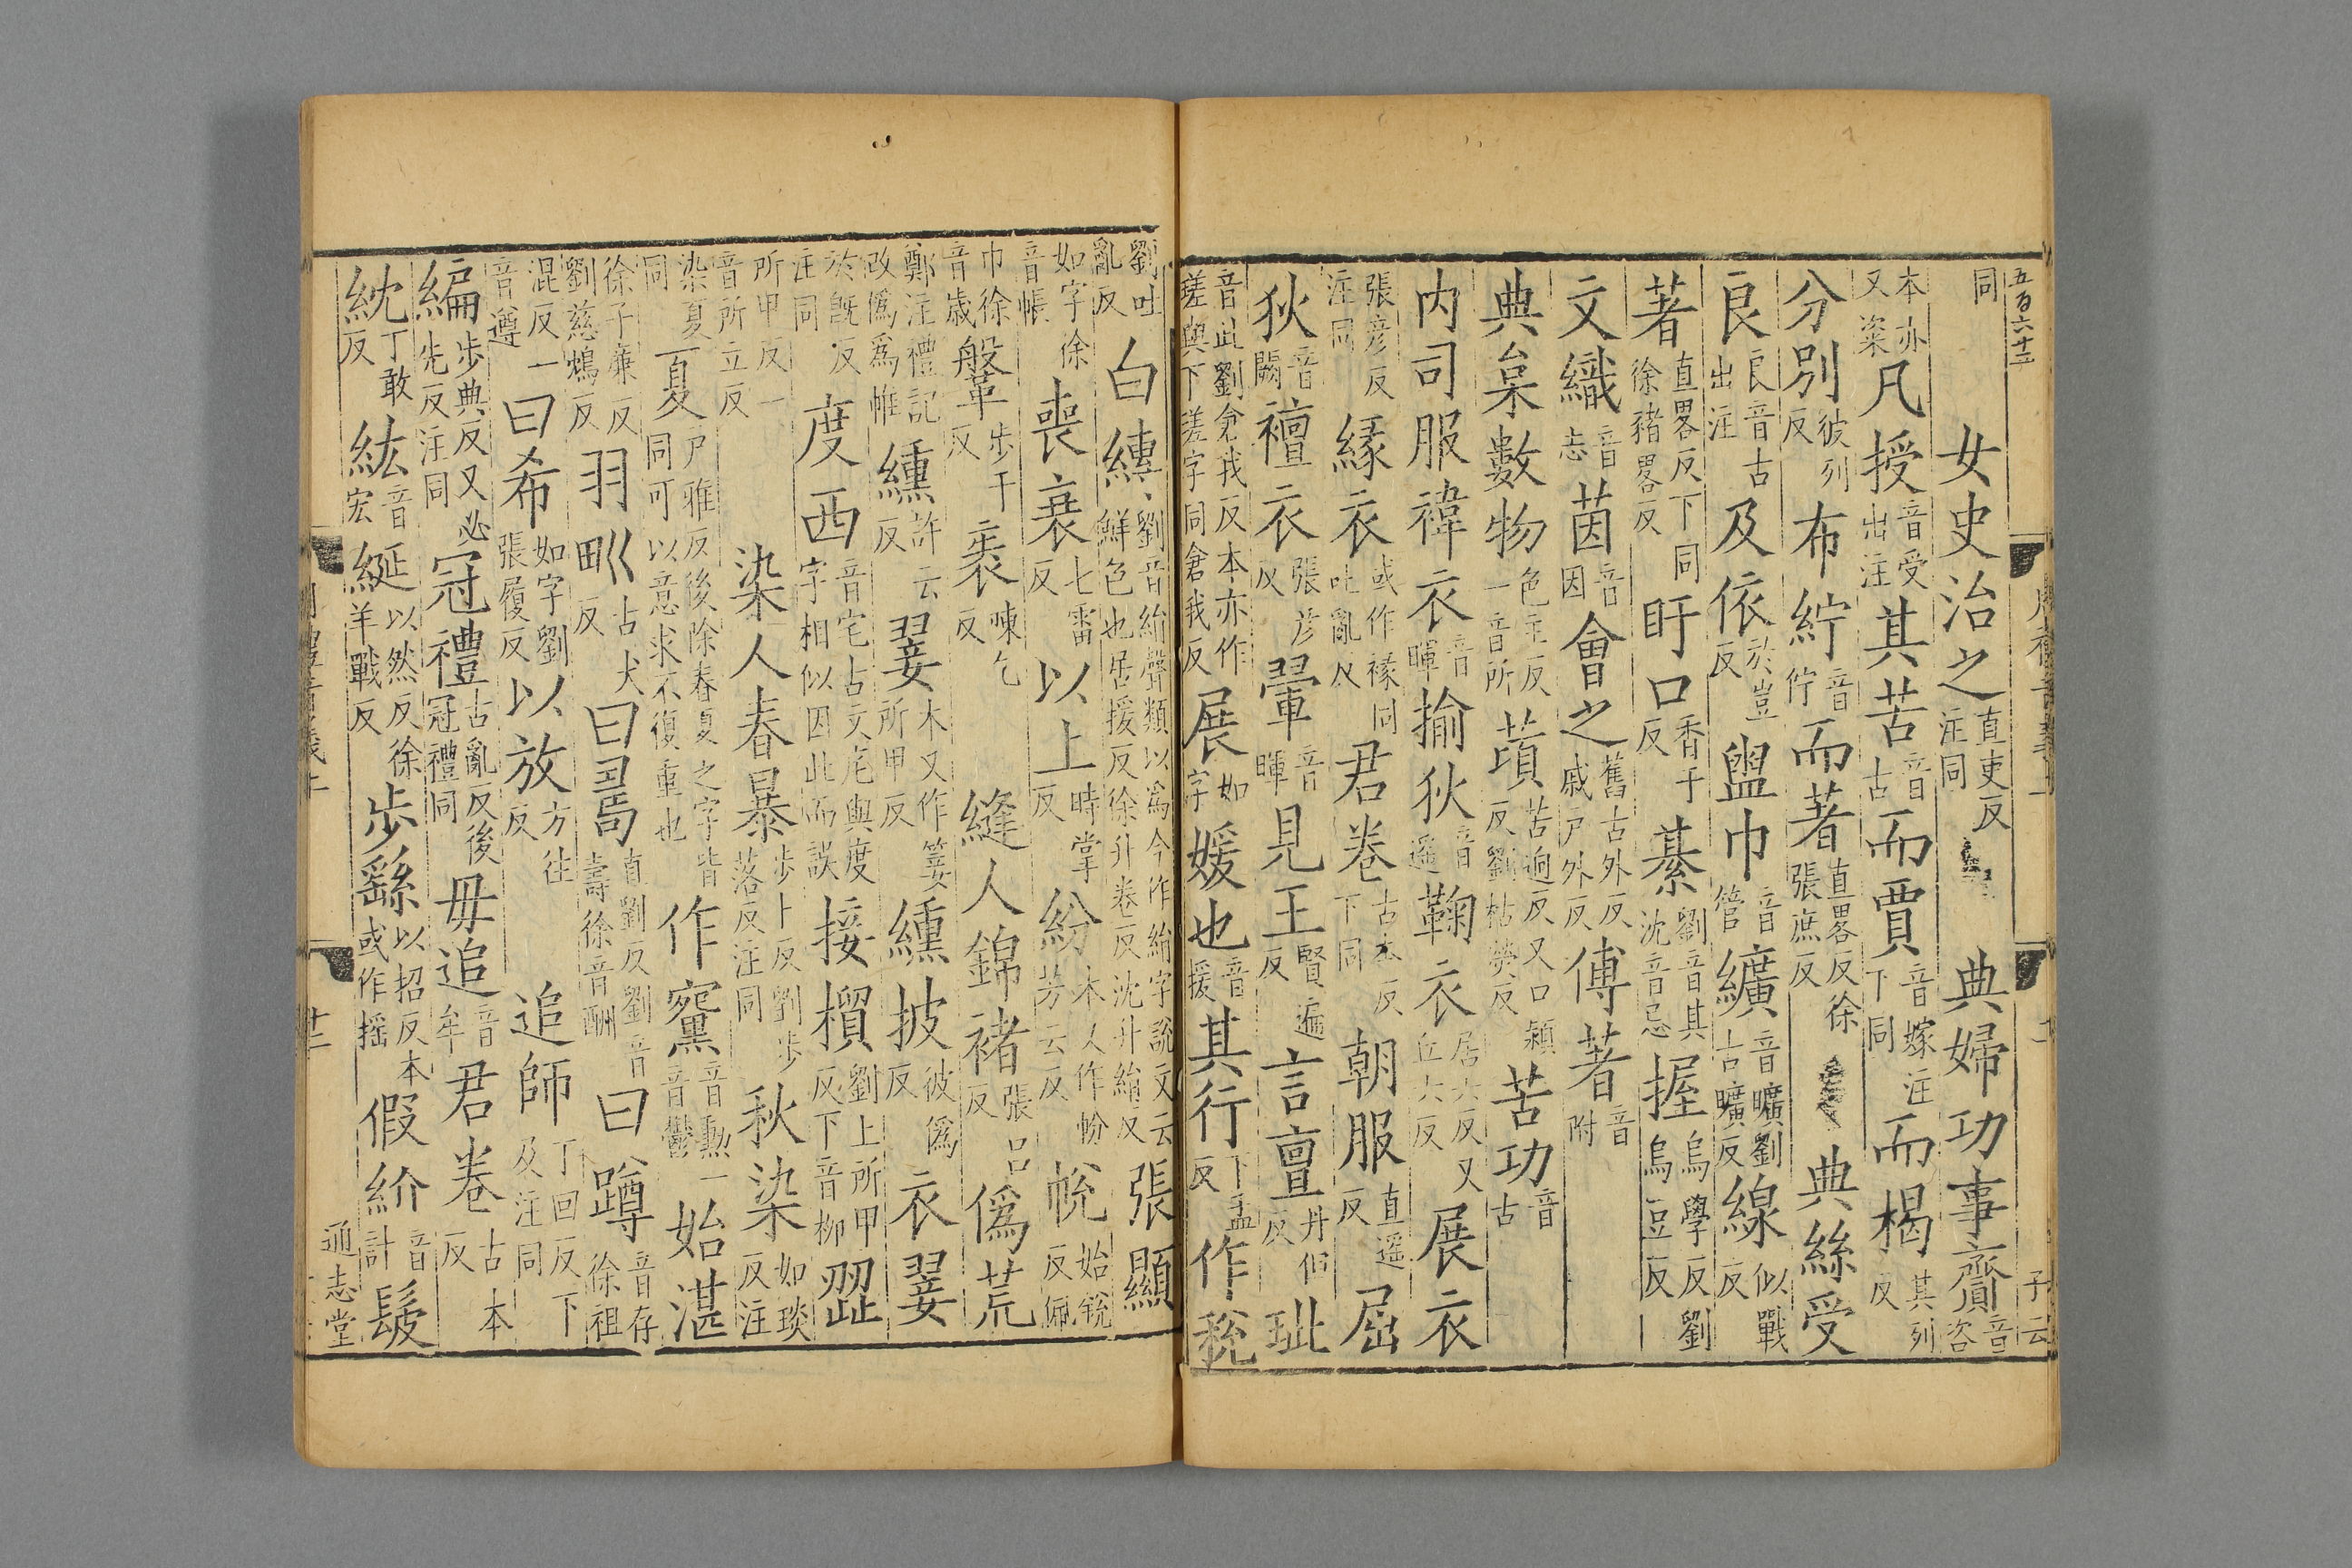 五百六十三
同 女史治之直吏反注同 典婦功事齎音咨
本亦又粢凡授音受出注其苦音古而賈音嫁注下同而楬其列反
分別彼列反布紵音佇而著直畧反徐張庶反 典絲受
良良音古出注及依於豈反盥巾音管纊音曠劉古曠反線似戰反
著直畧反下同徐豬畧反盱口香于反綦劉音其沈音忌握烏學反劉烏豆反
文織音志茵音因會之舊古外反戚戶外反傅著音附
典枲數物色主反一音所蕡苦迥反又口穎反劉枯熒反苦功音古
内司服褘衣音暉揄狄音遥鞠衣居六反又丘六反展衣
張彦反注同緣衣或作褖同吐亂反君卷古本反下同朝服直遥反屈
狄音闕襢衣張彦反翬音暉見王賢遍反言亶丹但反玼
音此劉倉我反本亦作瑳與下瑳字同倉我反展如字媛也音援其行下孟反作稅
劉吐亂反白縳劉音絹聲類以爲今作絹字說文云鮮色也居援反徐升卷反沈升絹反張顯
如字徐音帳喪衰七雷反以上時掌反紛木又作帉芳云反帨始銳反佩
巾徐音歲鞶步干反裘陳乞反 縫人錦褚張呂反僞荒
鄭注禮記改僞爲帷纁許云反翣木又作篓所甲反纁披彼僞反衣翣
於既反注同度西音宅古文㡯與度字相似因此而誤接檟劉上所甲反下音柳翣
所甲反一音所立反 染人春暴步卜反劉步落反注同秋染如琰反注
染夏同夏戶雅反後除春夏之字皆同可以意求不復重也作䵫音勲一音鬱始湛
徐子廉反劉慈鴆反羽畎古犬反曰𠷎直劉反劉音壽徐音酬曰蹲音存徐祖
混反一音遵曰希如字劉張履反以放方往反 追師丁回反下及注同
編步典反又必先反注同冠禮古亂反後冠禮同毋追音牟君卷古本反
紞丁敢反紘音宏綖以然反徐羊戰反步繇以招反本或作摇假紒音計髲
通志堂